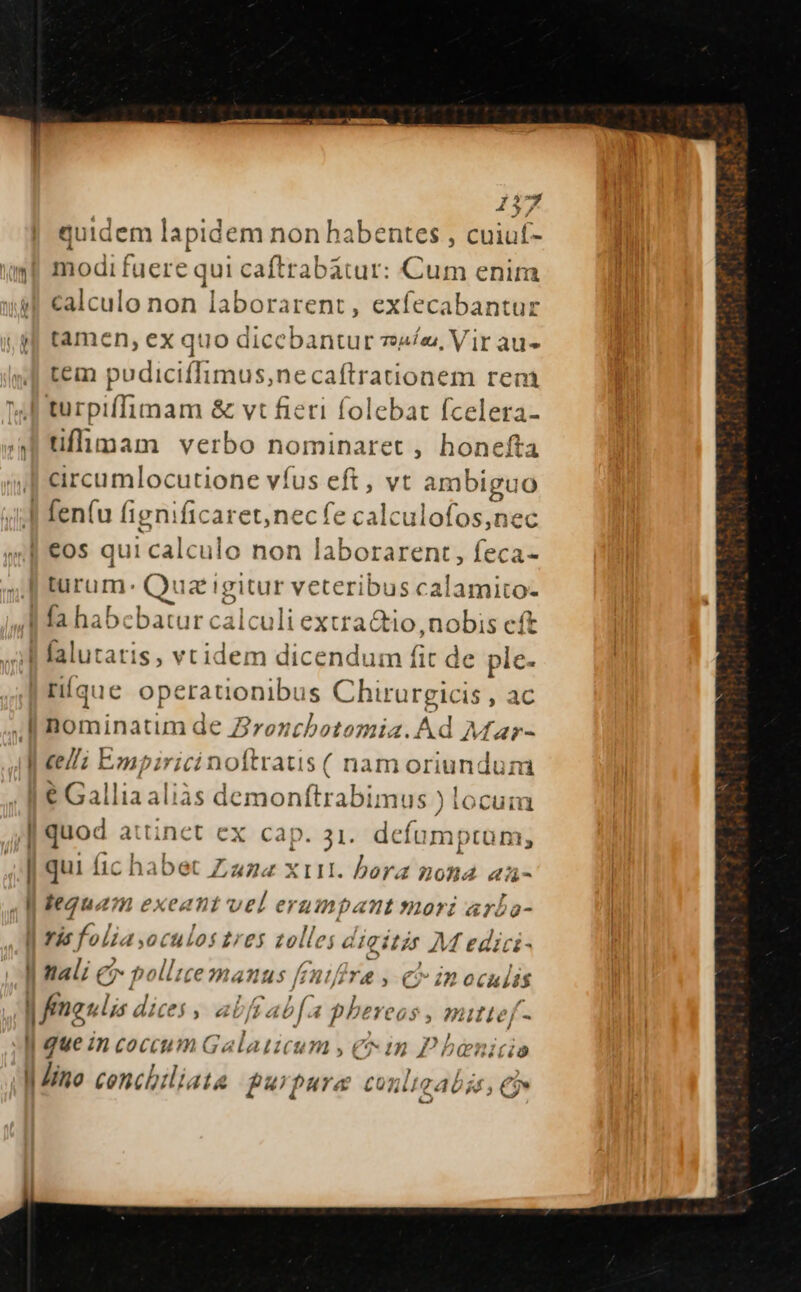 137
quidem lapidem non habentes, cuiuſ-
modi fuere qui caſtrabãtur: Cum enim
calculo non laborarent, exſecabantur
tamen, ex quo dicebantur Vir au-
tem pudiciſſimus, ne caſtrationem rem
turpiſſimam & vt fieri ſolebat ſcelera-
tiſſimam verbo nominaret, honeſta
circumlocutione vſus eſt, vt ambiguo
ſenſu ſignificaret, nec ſe calculoſos, nec
eos qui calculo non laborarent, ſeca-
turum. Quæ igitur veteribus calamito-
ſa habebatur calculi extractio, nobis eſt
ſalutaris, vt idem dicendum ſit de ple-
riſque operationibus Chirurgicis, ac
nominatim de Bronchotomia. Ad Mar-
celli Empirici noſtratis ( nam oriundum
è Gallia aliàs demonſtrabimus ) locum
quod attinet ex cap. 31. deſumptum,
qui ſic habet Luna XIII. hora nona an-
tequam exeant vel erumpant mori arbo-
ris folia, oculos tres tolles digitis Medici-
nali & pollice manus ſiniſtra, & in oculis
ſingulis dices, abſi abſa phereos, mitteſ-
que in coccum Galaticum, & in Phœnicio
lino conchiliata purpuræ conligabis, &